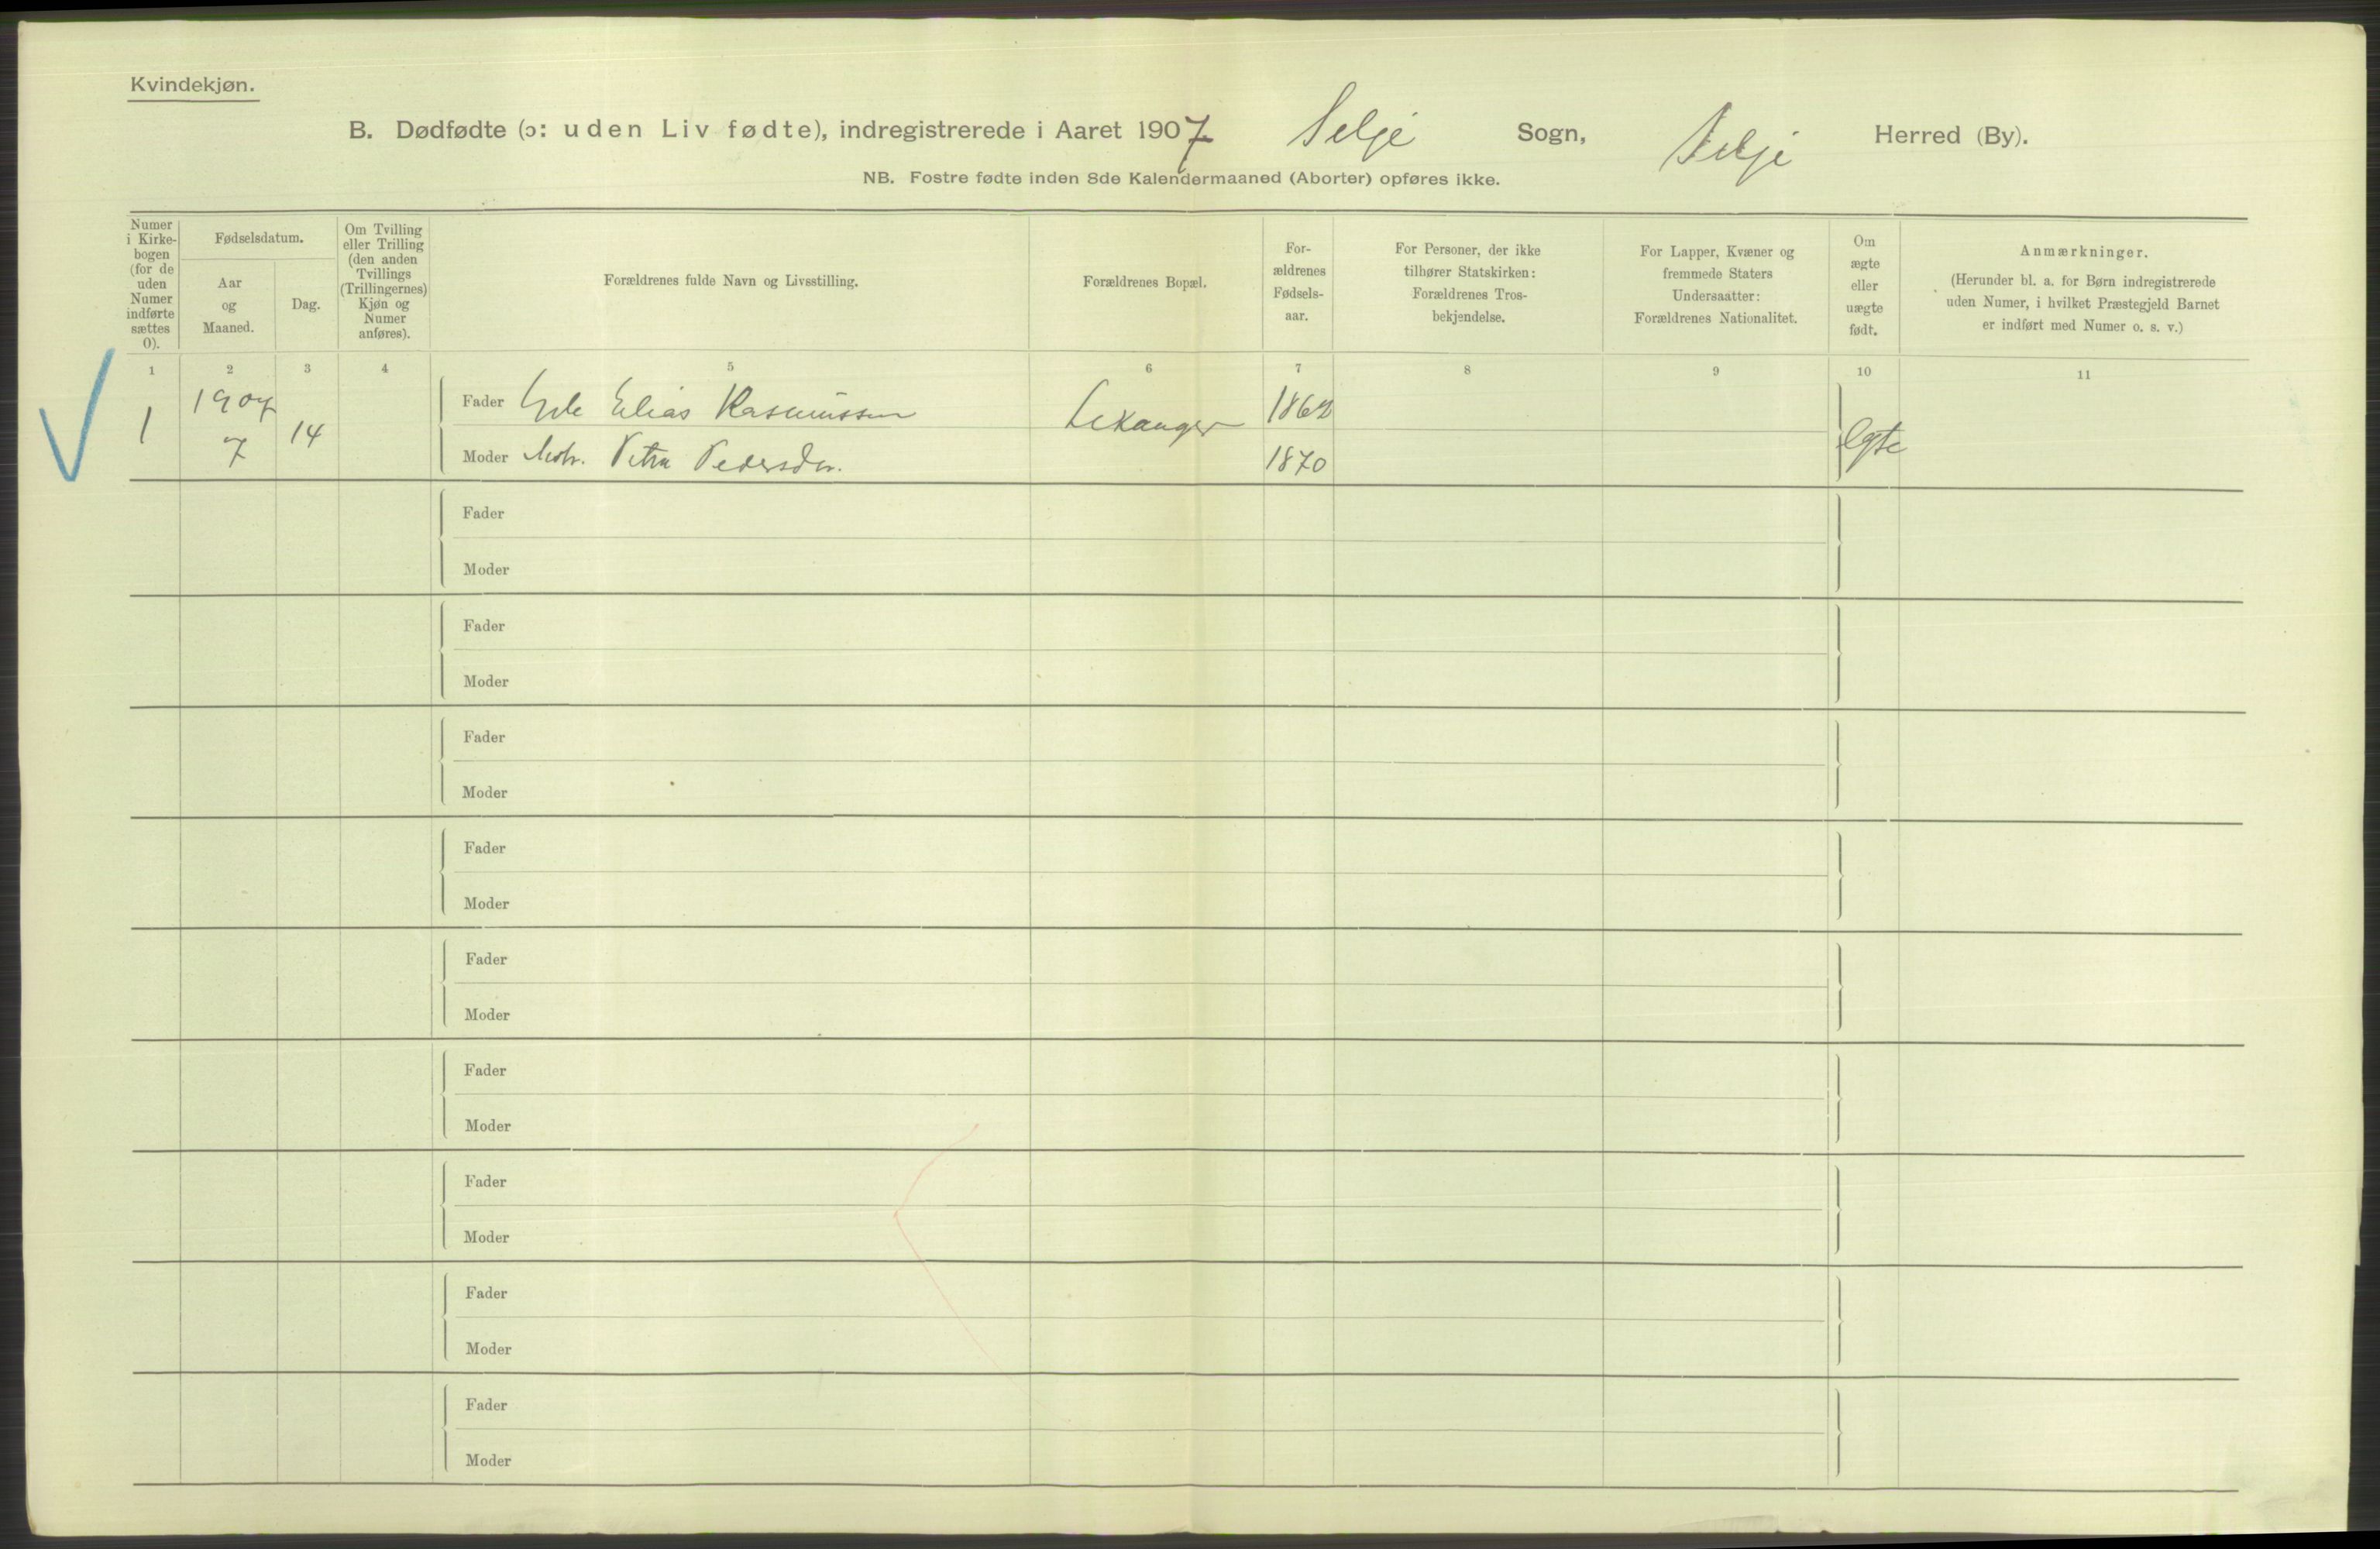 Kvindekjøn.
B. Dødfødte (ɔ: uden Liv fødte), indregistrerede i Aaret 1907 Selje Sogn, Selje Herred (By).
NB. Fostre fødte inden 8de Kalendermaaned (Aborter) opføres ikke.
Numer
i Kirke-
bogen
(for de
uden
Numer
indførte
sættes
0).
Fødselsdatum.
Aar
og
Maaned.
Dag.
Om Tvilling
eller Trilling
(den anden
Tvillings
(Trillingernes)
Kjøn og
Numer
anføres).
Forældrenes fulde Navn og Livsstilling.
Forældrenes Bopæl.
For-
ældrenes
Fødsels-
aar.
For Personer, der ikke
tilhører Statskirken:
Forældrenes Tros-
bekjendelse.
For Lapper, Kvæner og
fremmede Staters
Undersaatter:
Forældrenes Nationalitet.
Om
ægte
eller
uægte
født.
Anmærkninger.
(Herunder bl. a. for Børn indregistrerede
uden Numer, i hvilket Præstegjeld Barnet
er indført med Numer o. s. v.)
1 2 3 4 5 6 7 8 9 10 11
1 1907 7 14
Fader Elias Rasmussen Lekanger 1862
Moder Petra Pedersdtr. 1870
Egte
Fader
Moder
Fader
Moder
Fader
Moder
Fader
Moder
Fader
Moder
Fader
Moder
Fader
Moder
Fader
Moder
Fader
Moder